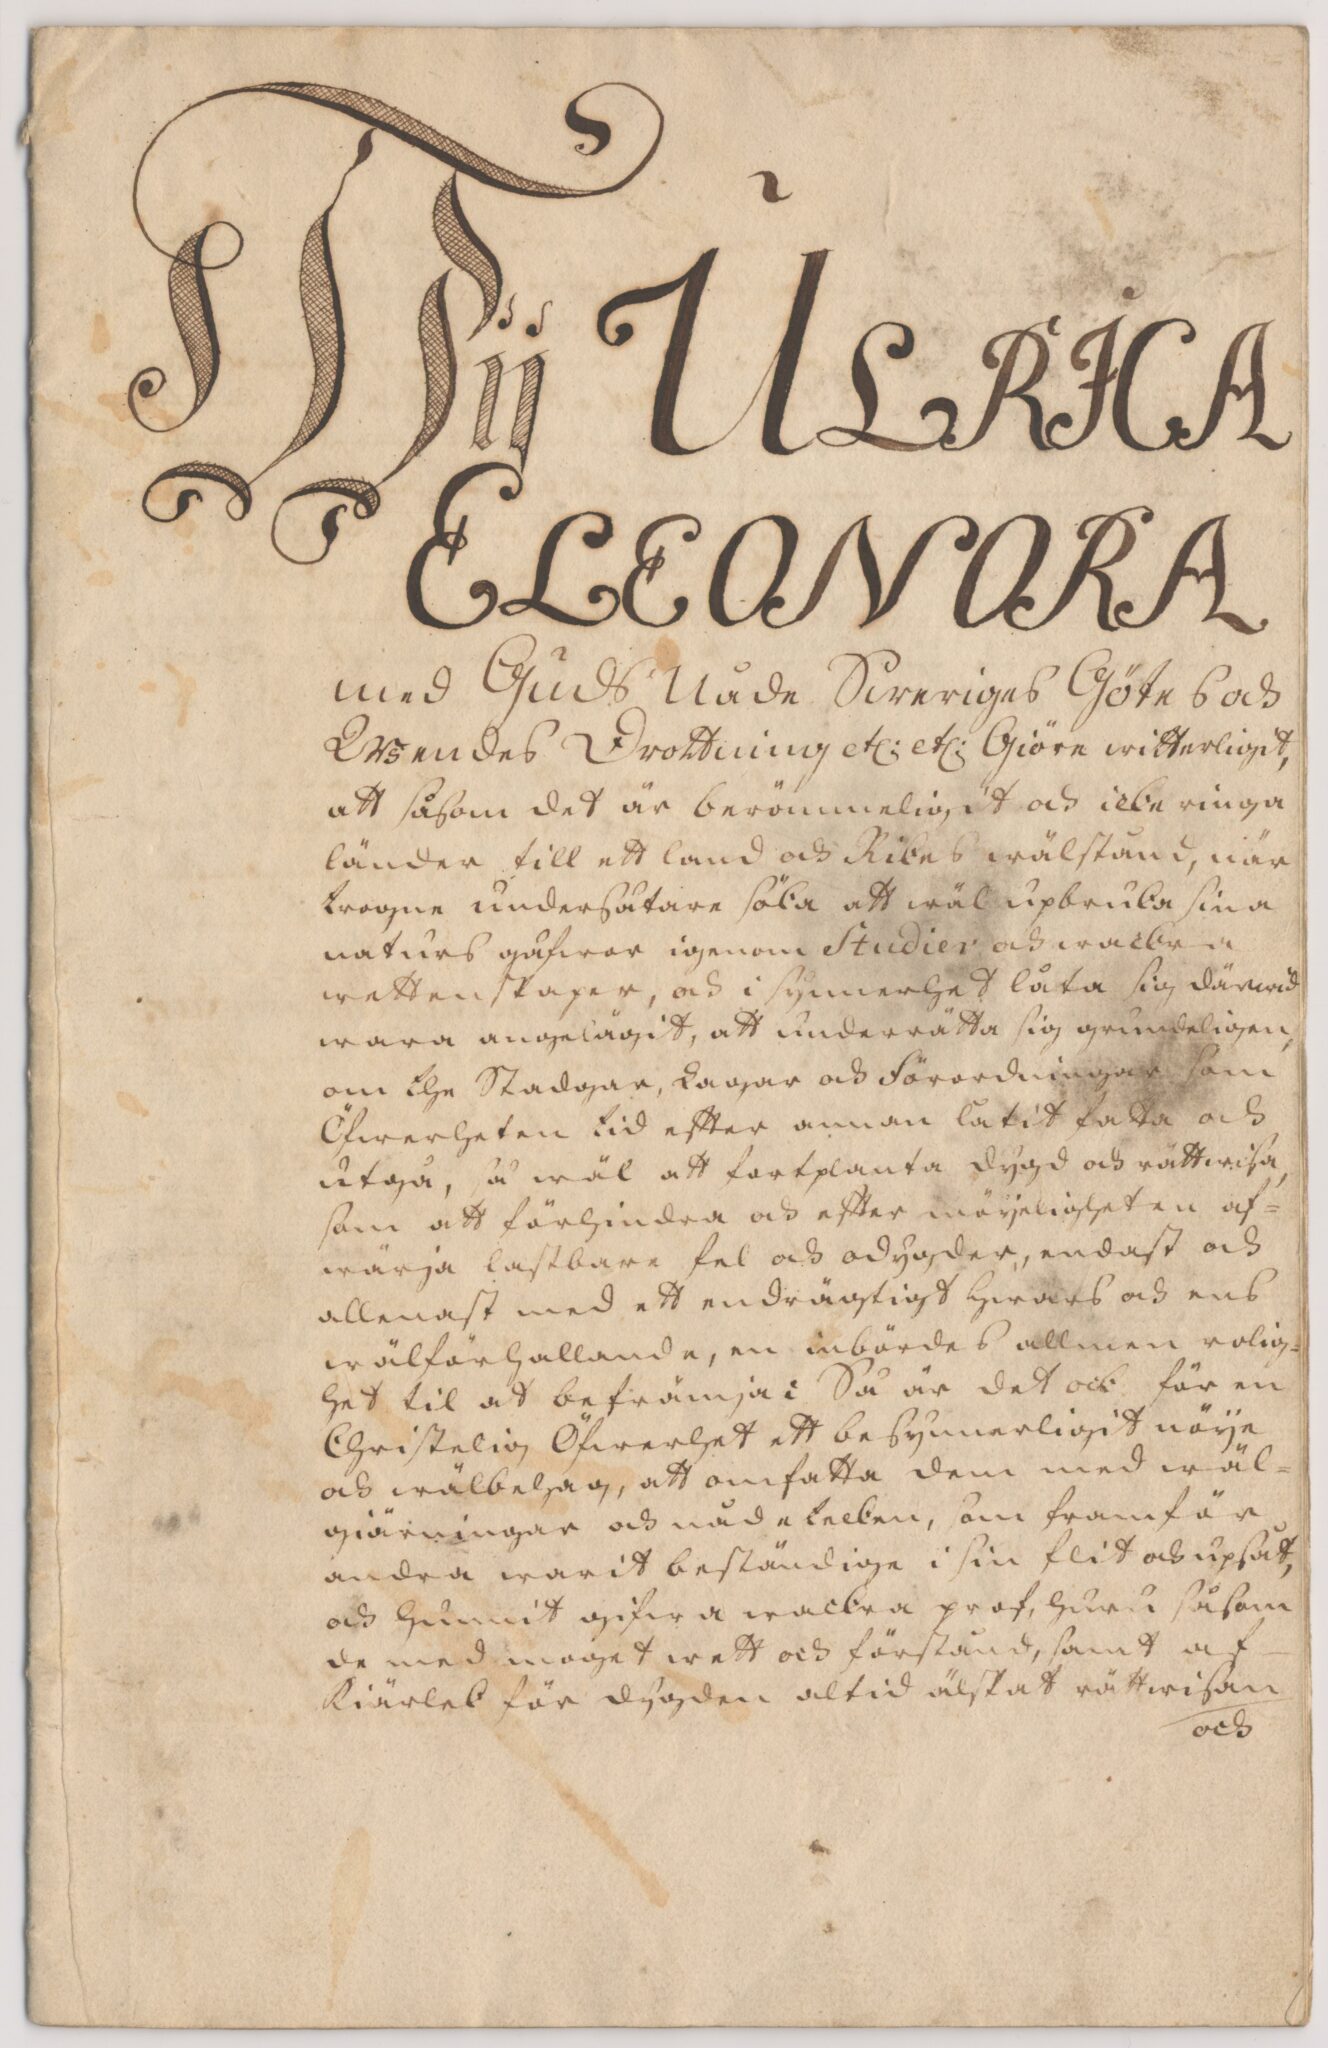 Wij ULRICA
ELEONORA
med Guds Nåde Sweriges Götes och
Wendes Drottning etc: etc: Giöre witterligit,
att såsom det är berömmeligit och icke ringa
länder till ett land och Rikes wälstånd, när
trogne undersåtare söka att wäl upbruka sina
naturs gåfwor igenom Studier och wackra
wettenskaper, och i synnerhet låta sig därwid
wara angelägit, att underrätta sig grundeligen,
om the Stadgar, Lagar och Förordningar som
Öfwerheten tid effter annan låtit fatta och
utgå, så wäl att fortplanta dygd och rättwisa,
som att förhindra och effter möyeligheten af=
wärja lastbare fel och odygder, endast och
allenast med ett endrägtigt hwars och ens
wälförhallande, en inbördes allmen rolig=
het til at befrämja: Så är det ock för en
Christelig Öfwerhet ett besynnerligit nöye
och wälbehag, att omfatta dem med wäl=
giärningar och nådetecken, som framför
andra warit beständige i sin flit och upsåt,
och hunnit gifwa wackra prof, huru såsom
de med moget wett och förstånd, samt af
Kiärlek för dygden altid älskat rättwisan
och